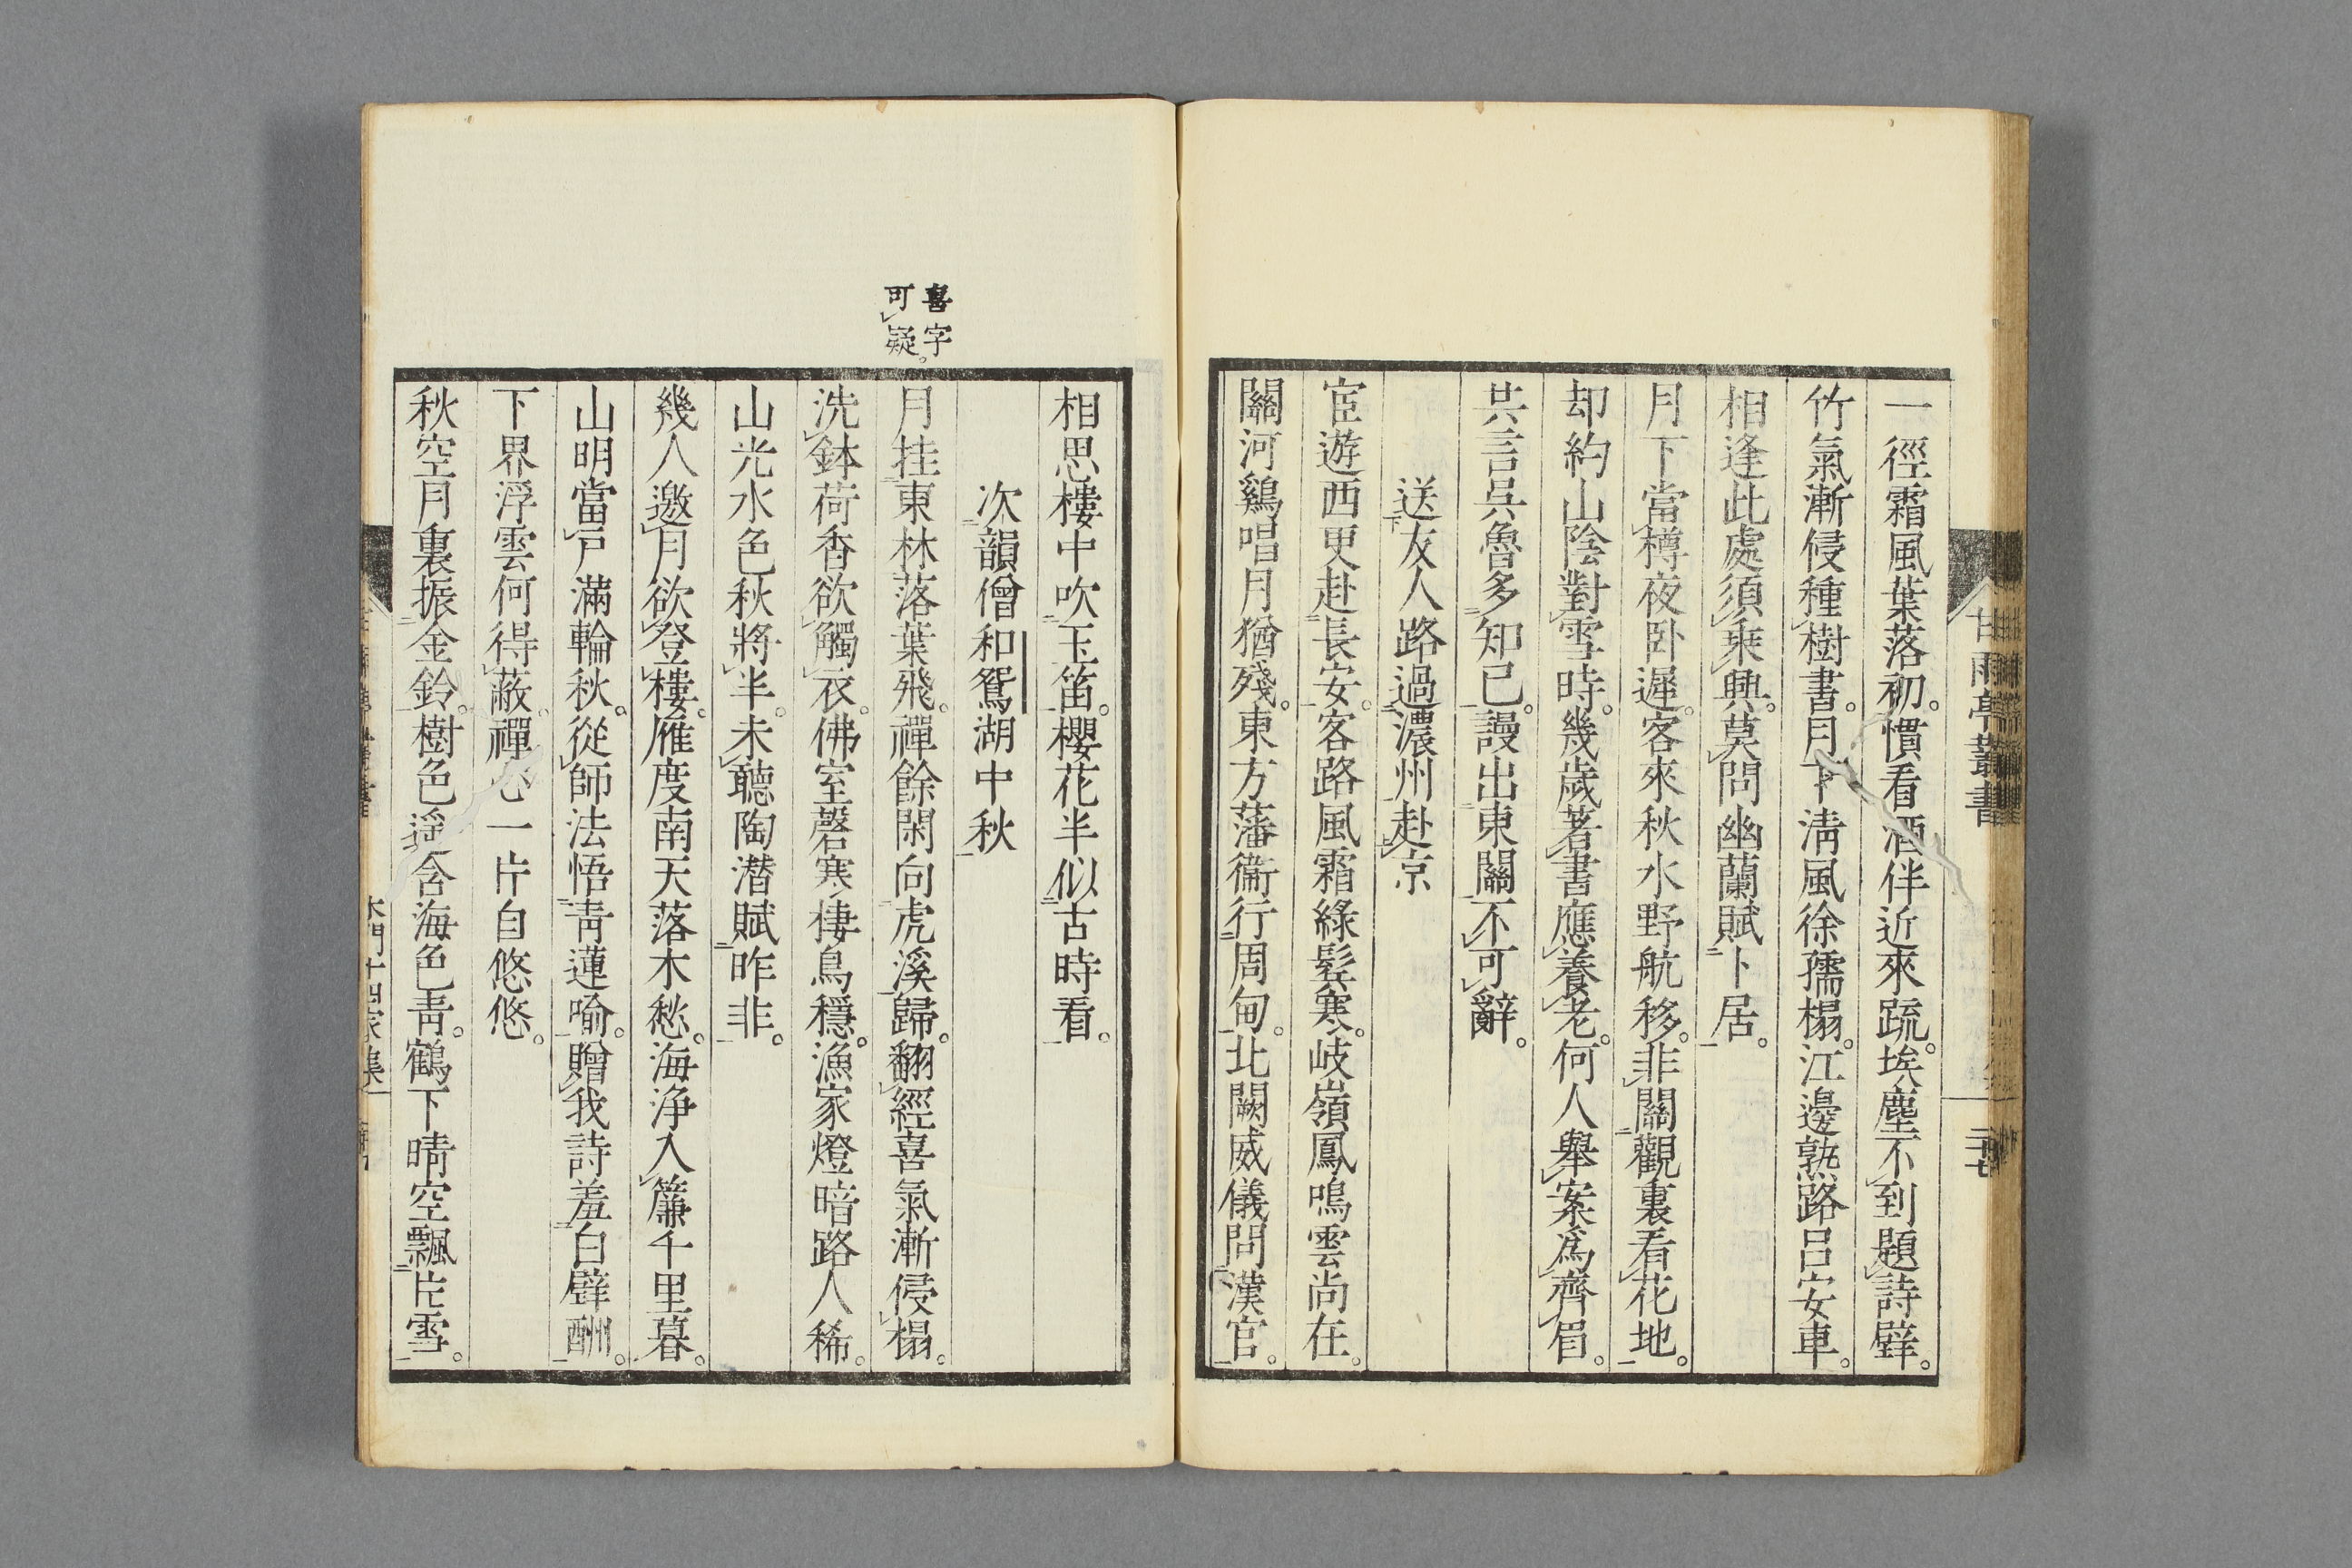 一徑霜風葉落初。慣看酒伴近來疏。埃塵不到題詩壁。
竹氣漸侵種樹書。月下淸風徐孺榻。江邊熟路呂安車。
相逢此處須乘興。莫問幽蘭賦卜居。
月下當樽夜臥遲。客來秋水野航移。非關觀裏看花地。
却約山陰對雪時。幾歲著書應養老。何人擧案爲齊眉。
共言吳魯多知己。謾出東關不可辭。
送友人路過濃州赴京
宦遊西更赴長安。客路風霜綠鬂寒。岐嶺鳳鳴雲尙在。
關河鷄唱月猶殘。東方藩衞行周甸。北闕威儀問漢官。
甘雨亭叢書
二十七
相思樓中吹玉笛。櫻花半似古時看。
次韻僧和鴛湖中秋
月挂東林落葉飛。禪餘閑向虎溪歸。翻經喜氣漸侵榻。
洗鉢荷香欲觸衣。佛室磬寒棲鳥穩。漁家燈暗路人稀。
山光水色秋將半。未聽陶潛賦昨非。
幾人邀月欲登樓。雁度南天落木愁。海淨入簾千里暮。
山明當戶滿輪秋。從師法悟靑蓮喩。贈我詩羞白璧酬。
下界浮雲何得蔽。禪心一片自悠悠。
秋空月裏振金鈴。樹色遙含海色靑。鶴下晴空飄片雪。
喜字
可疑。
木門十四家集